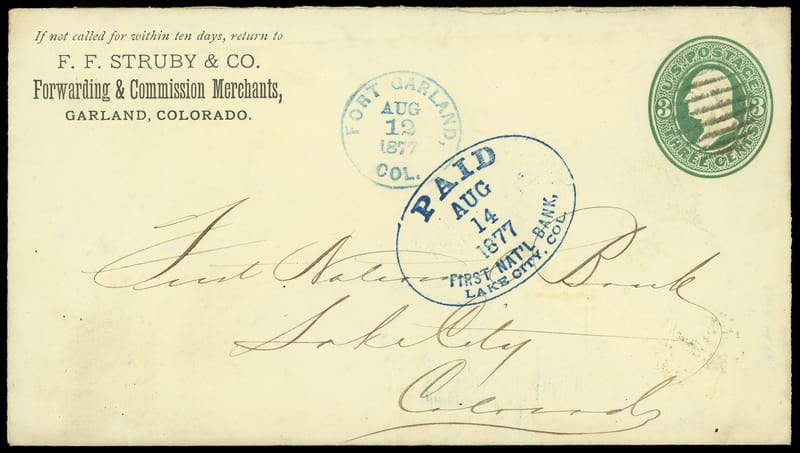 If not called for within ten days, return to
F. F. STRUBY & CO.
Forwarding & Commission Merchants,
GARLAND, COLORADO.
FORT GARLAND,
AUG
12
1877
COL.
U.S. POSTAGE
3 3
THREE CENTS
PAID
AUG
14
1877
FIRST NAT'L BANK,
LAKE CITY, COL.
First National Bank
Lake City
Colorado